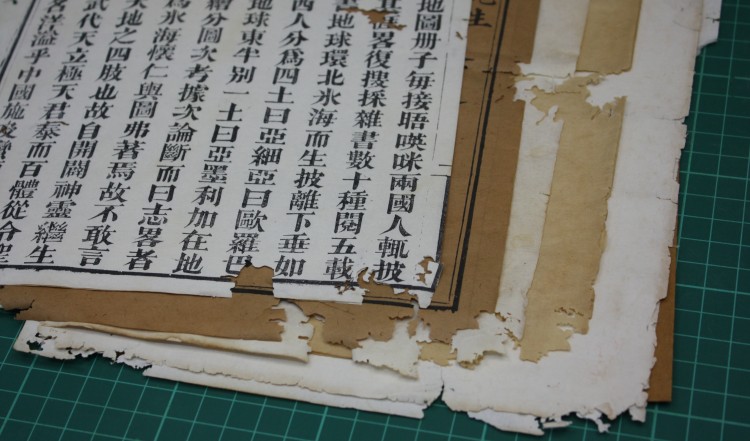 生
地圖册子每接晤𠸄咪兩國人輒披
畧復搜採雜書數十種閱五載
地球環北氷海而生披離下垂如
西人分爲四土曰亞細亞曰歐羅巴
地球東半別一土曰亞墨利加在地
繪分圖次考據次論斷而曰志畧者
爲氷海懷仁輿圖弗著焉故不敢言
天地之四肢也故自開闢神靈繼生
武代天立極天君泰而百體從令聖
名洋溢乎中國施及蠻